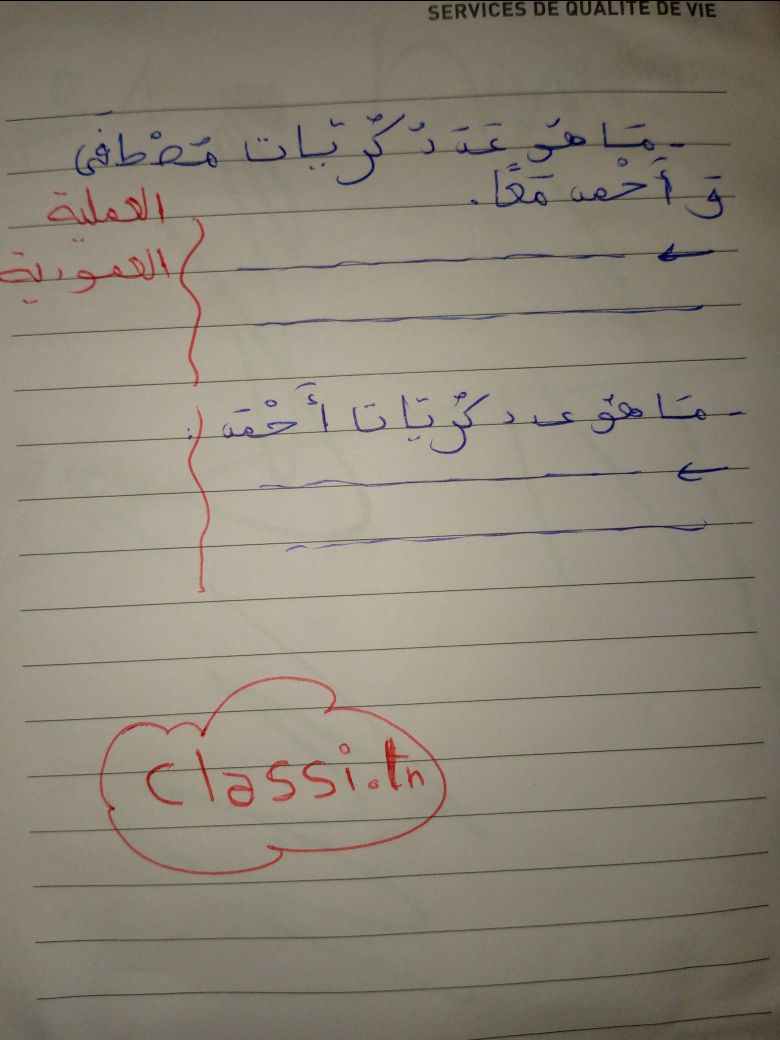 SERVICES DE QUALITE DE VIE
- مَا هُوَ عَدَدُ كُرَيَّات مُصْطَفَى
وَ أَحْمد مَعًا.
العملية
العمودية
- مَا هوَ عدد كُرَيَّاتا أَحْمَد :
classi.tn